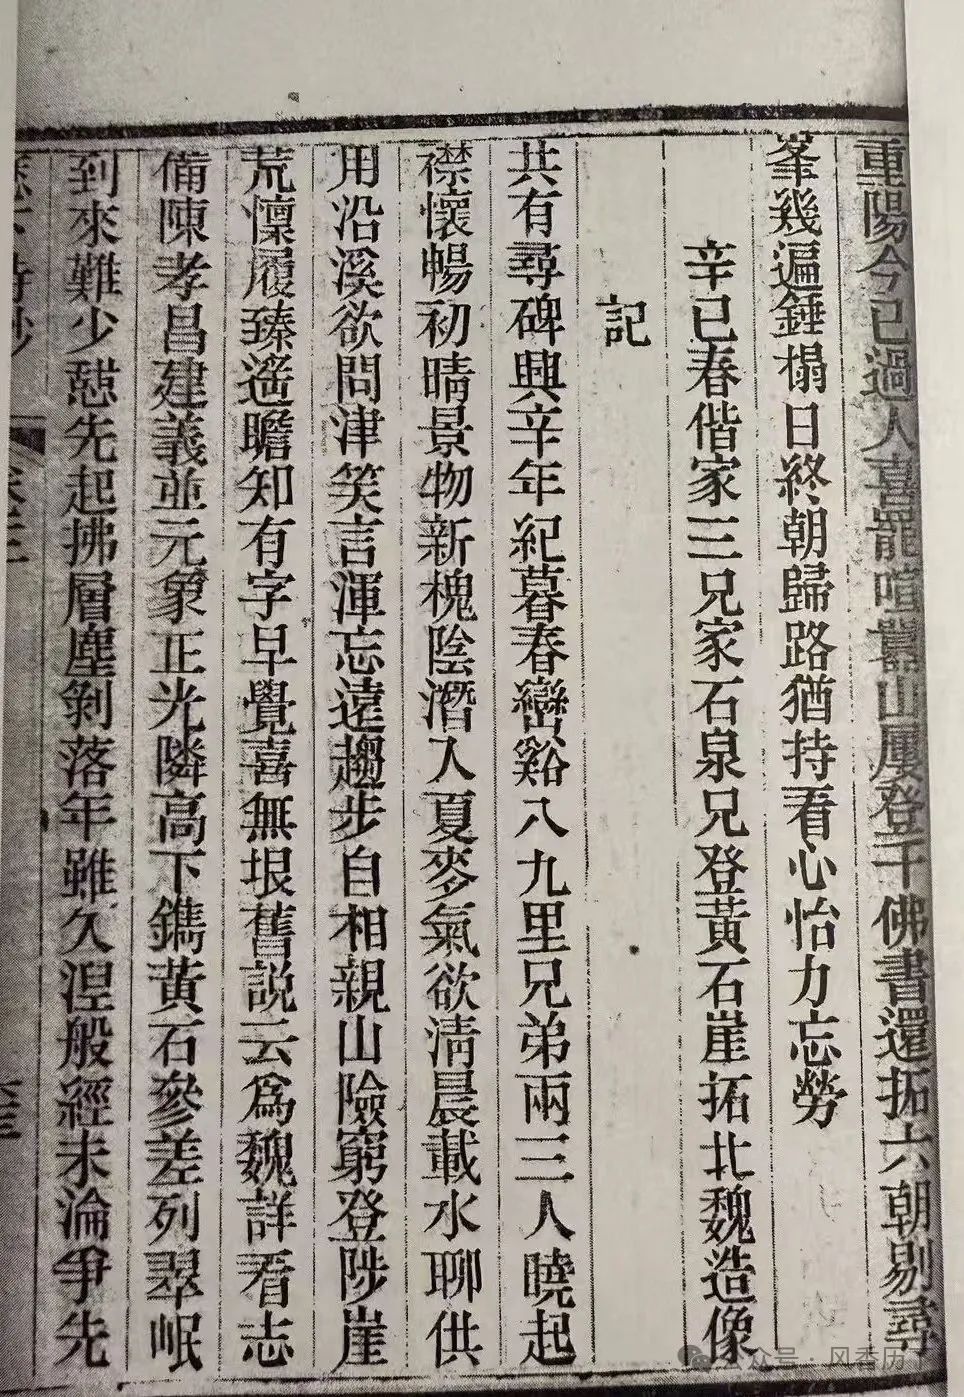 重陽今已過人喜罷喧囂山屢登千佛書還拓六朝剔尋
峯幾遍錘榻日終朝歸路猶持看心怡力忘勞
辛巳春偕家三兄家石泉兄登黃石崖拓北魏造像
記
共有尋碑興辛年紀暮春巒谿八九里兄弟兩三人曉起
襟懷暢初晴景物新槐陰潛入夏麥氣欲淸晨載水聊供
用沿溪欲問津笑言渾忘遠趨步自相親山險窮登陟崖
荒懍履臻遙瞻知有字早覺喜無垠舊說云爲魏詳看志
備陳孝昌建義並元象正光隣高下鐫黃石參差列翠岷
到來難少憩先起拂層塵剝落年雖久涅般經未淪爭先
公众号·风香历下